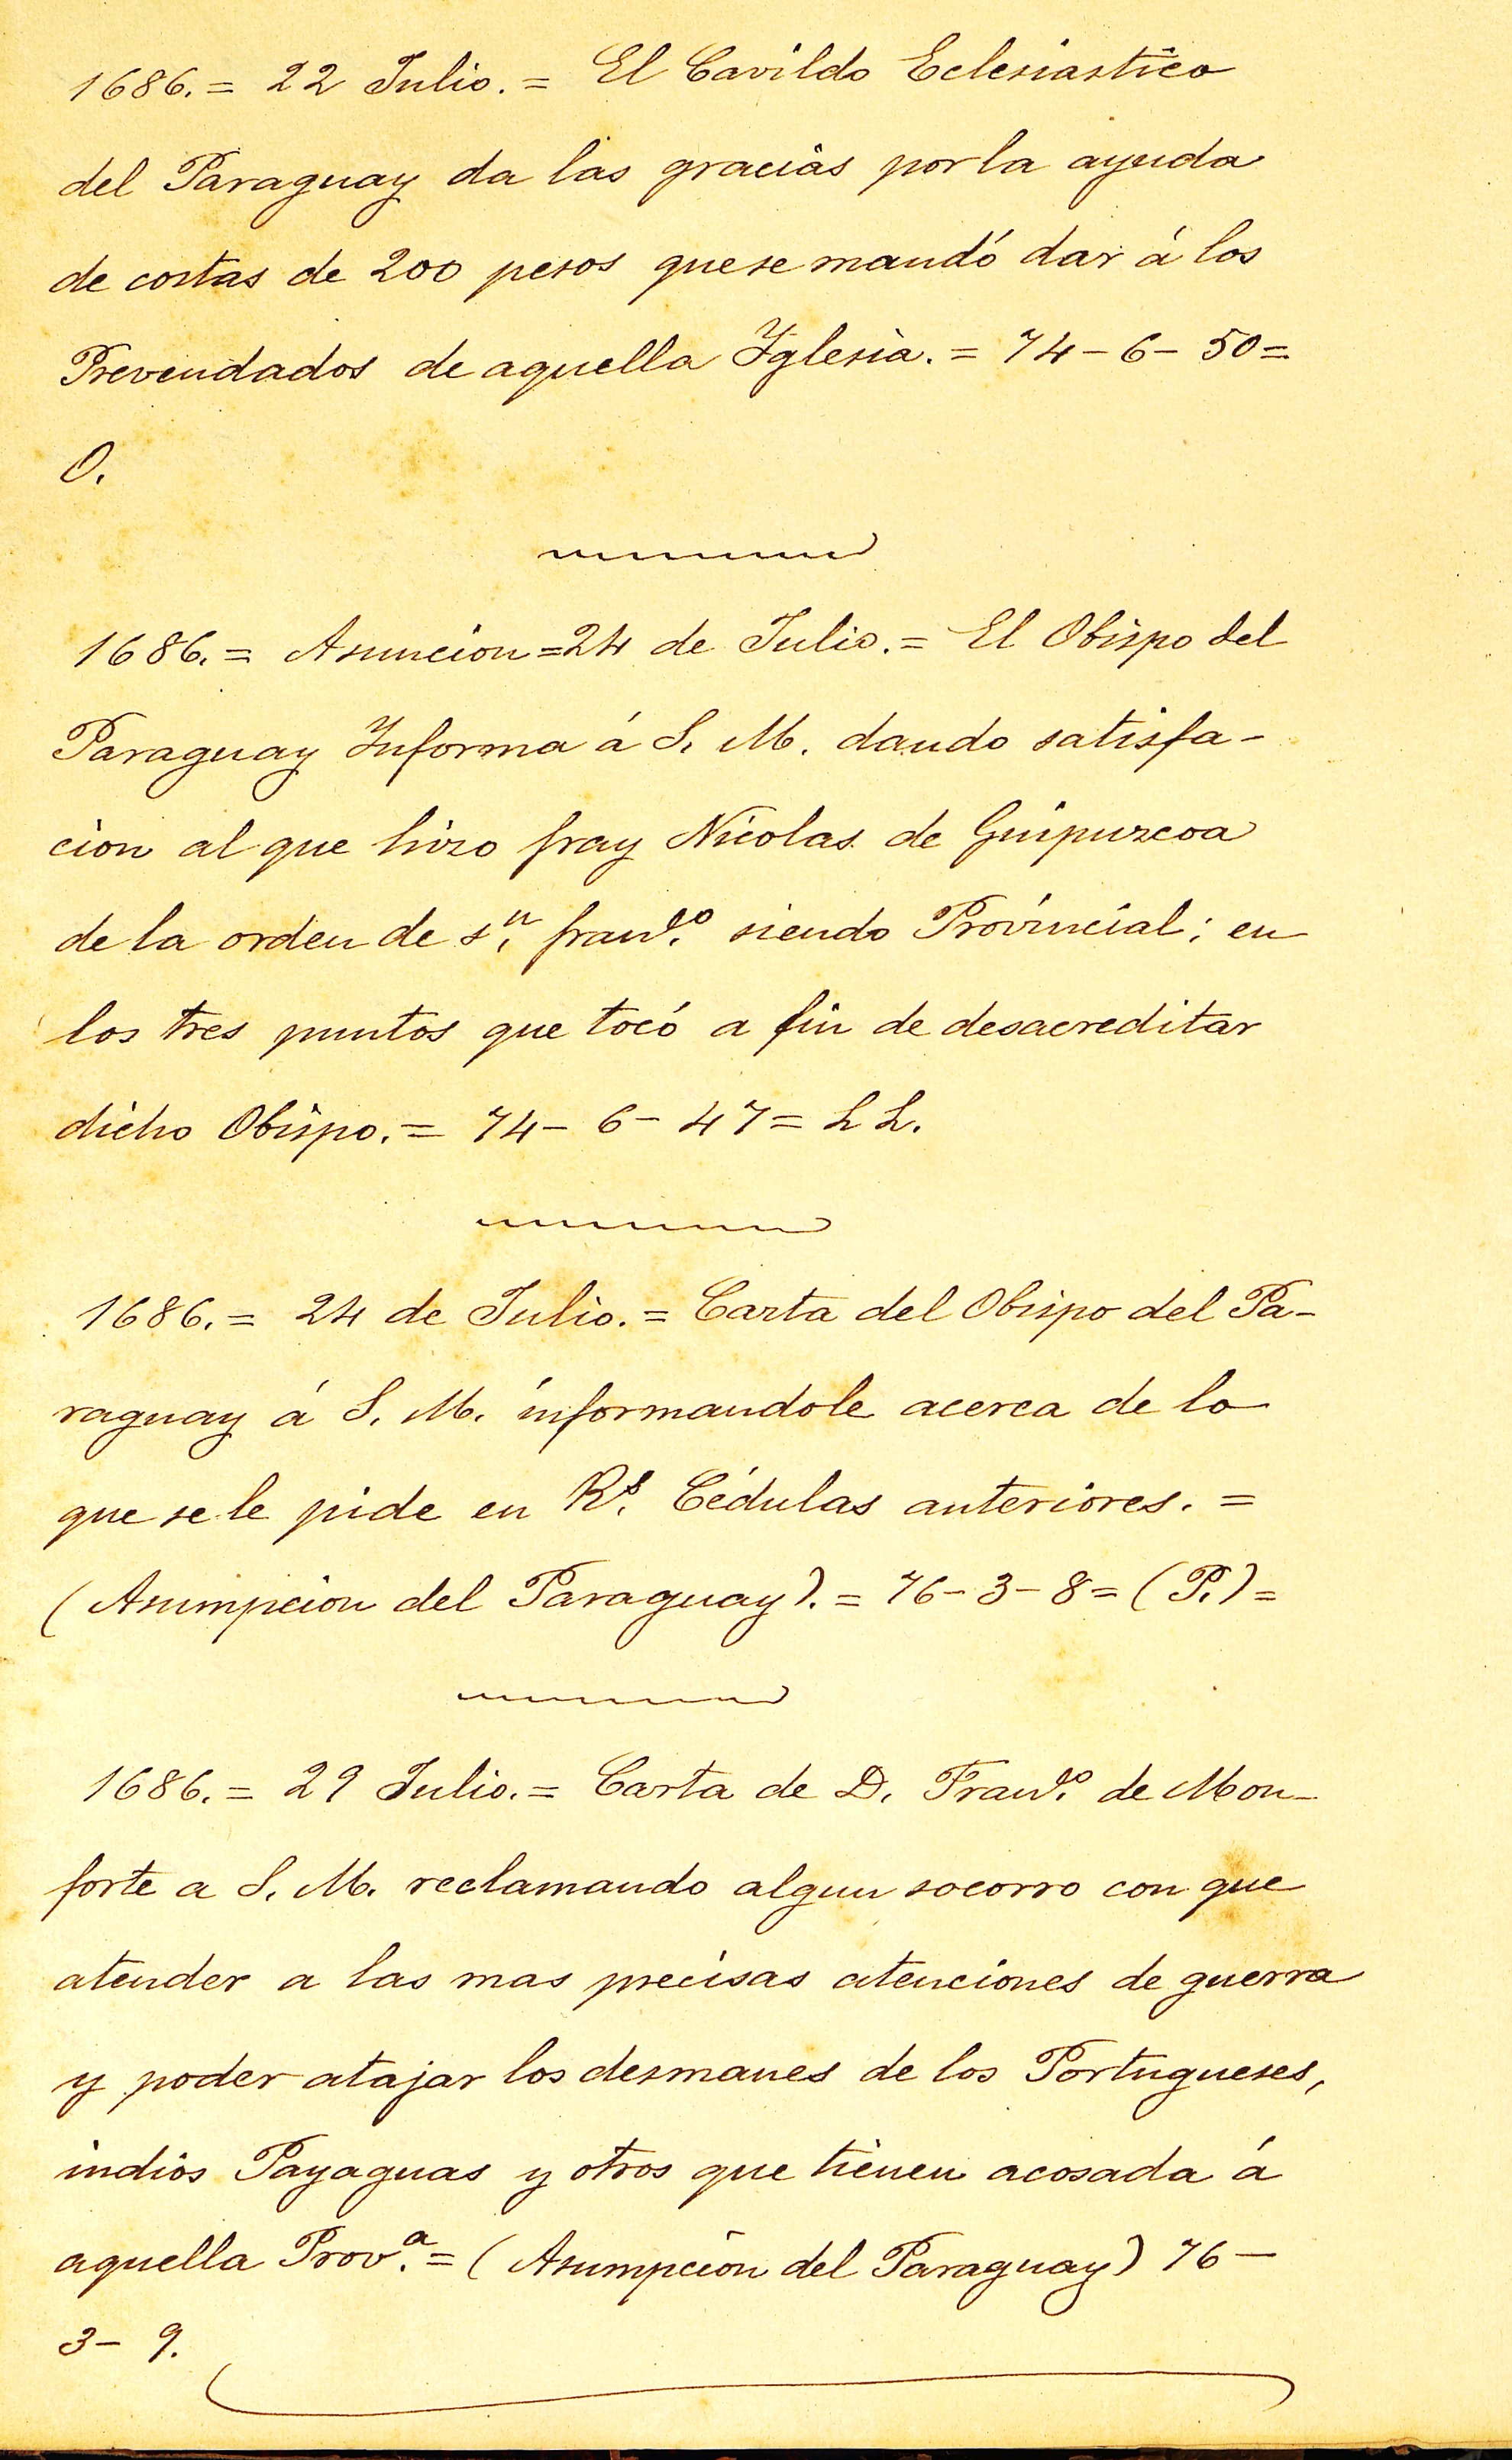 1686.= 22 Julio.= El Cavildo Eclesiastico
del Paraguay da las gracias por la ayuda
de costas de 200 pesos que se mandó dar á los
Prevendados de aquella Yglesia.= 74-6-50=
O.
1686.= Asuncion=24 de Julio.= El Obispo del
Paraguay Informa á S. M. dando satisfa-
cion al que hizo fray Nicolas de Guipuzcoa
de la orden de s.n fran.co siendo Provincial; en
los tres puntos que tocó a fin de desacreditar
dicho Obispo.= 74-6-47= L L.
1686.= 24 de Julio.= Carta del Obispo del Pa-
raguay á S. M. informandole acerca de lo
que se le pide en R.s Cédulas anteriores.=
(Asumpcion del Paraguay).= 76-3-8= (P.)=
1686.= 29 Julio.= Carta de D. Fran.co de Mon-
forte a S. M. reclamando algun socorro con que
atender a las mas precisas atenciones de guerra
y poder atajar los desmanes de los Portugueses,
indios Payaguas y otros que tienen acosada á
aquella Prov.a= (Asumpcion del Paraguay) 76-
3-9.